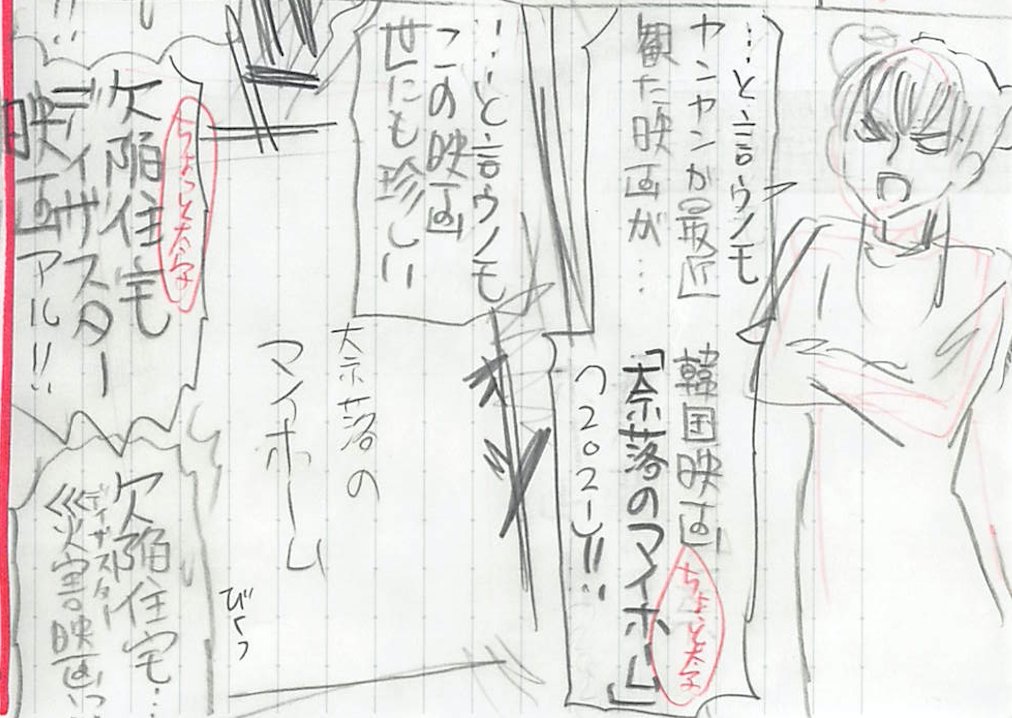 …と言うのも
ヤンヤンが最近
観た映画が…
韓国映画
「奈落のマイホーム」
(2021)!!
ちょっと太字
…と言うのも
この映画
世にも珍しい
奈落の
マイホーム
びくっ
ちょっと太字
欠陥住宅
ディザスター
映画アル!!
欠陥住宅…
ディザスター
災害映画っ
!!